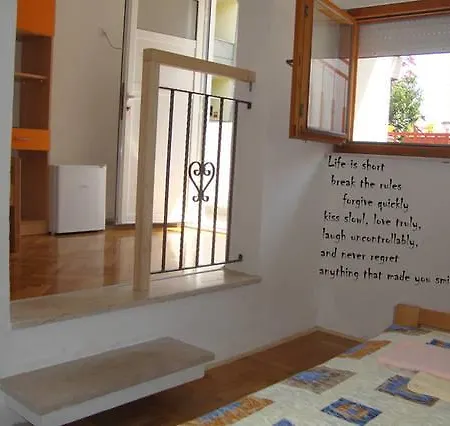 Life is short
break the rules
forgive quickly
kiss slowl, love truly,
laugh uncontrollably,
and never regret
anything that made you smi